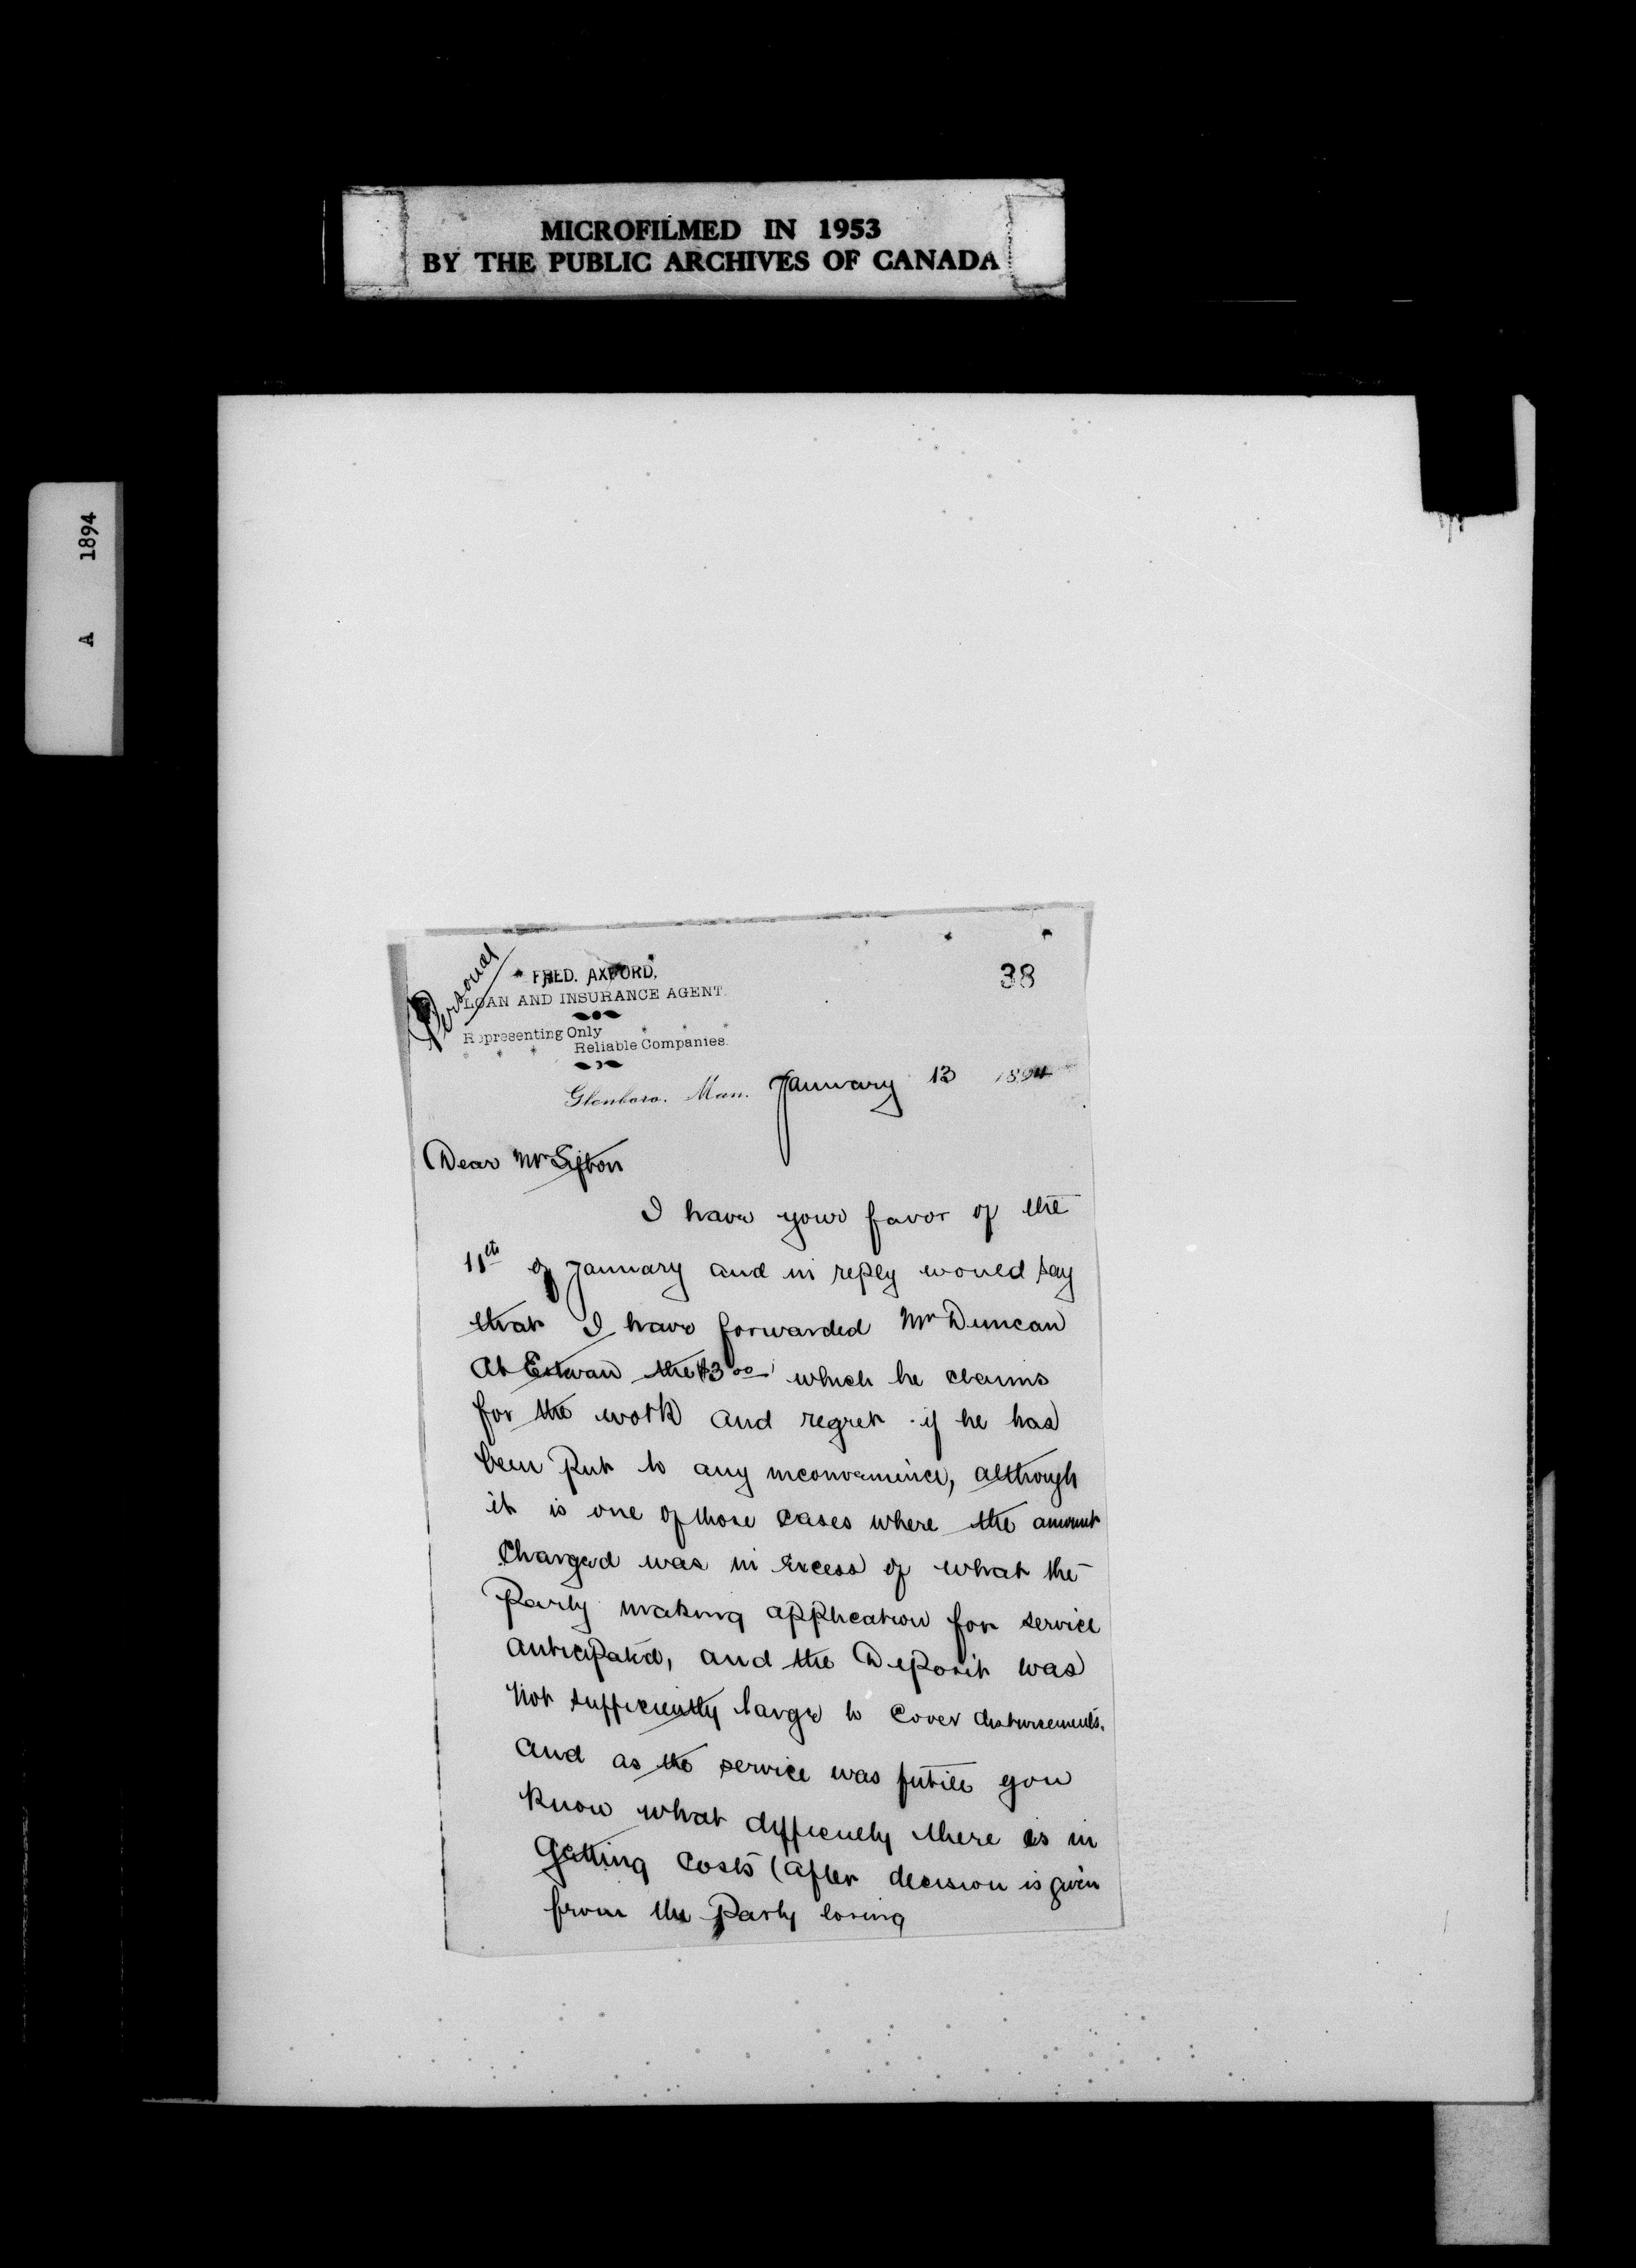 MICROFILMED IN 1953
BY THE PUBLIC ARCHIVES OF CANADA
A 1894
38
Personal
FRED. AXFORD,
LOAN AND INSURANCE AGENT.
Representing Only
Reliable Companies.
Glenboro, Man. January 13 1894
Dear Mr Sifton
I have your favor of the
11th of January and in reply would say
that I have forwarded Mr Duncan
at Estevan the $3.00 which he claims
for the work and regret if he has
been put to any inconvenience, although
it is one of those cases where the amount
Charged was in excess of what the
Party making application for service
anticipated, and the Deposit was
Not sufficiently large to Cover disbursements.
and as the service was futile you
know what difficulty there is in
Getting Costs (after decision is given
from the Party losing